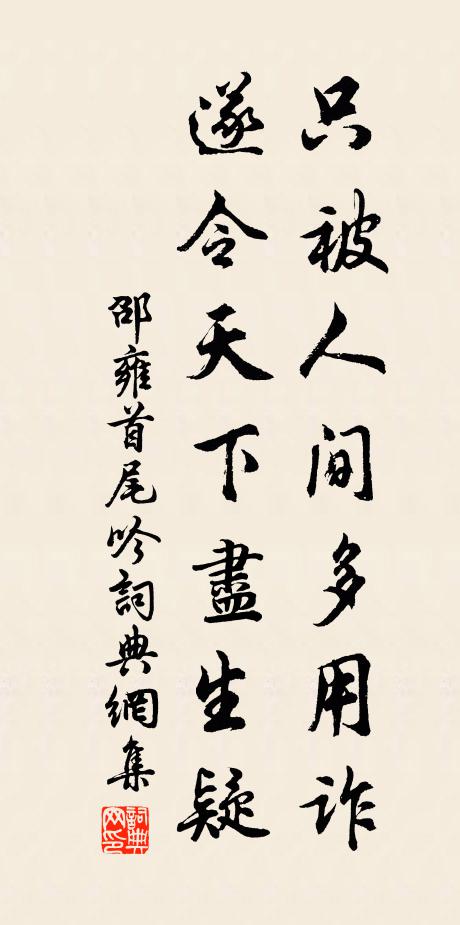 只被人间多用詐
遂令天下盡生疑
邵雍首尾吟詞典網集
詞典網印